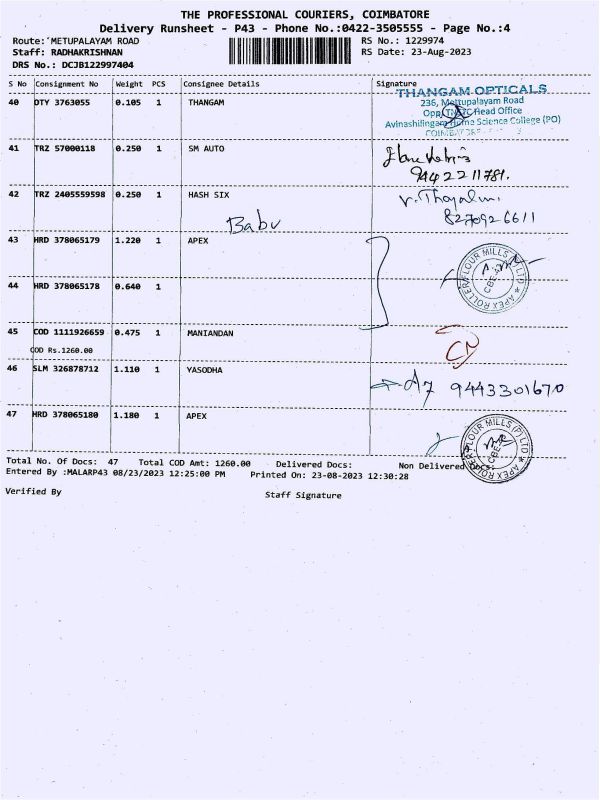 THE PROFESSIONAL COURIERS, COIMBATORE
Delivery Runsheet - P43 - Phone No.:0422-3505555 - Page No.:4
Route: METUPALAYAM ROAD RS No.: 1229974
Staff: RADHAKRISHNAN RS Date: 23-Aug-2023
DRS No.: DCJB122997404
S No Consignment No Weight PCS Consignee Details Signature
40 DTY 3763055 0.105 1 THANGAM
THANGAM OPTICALS
236, Mettupalayam Road
Opp. Head Office
Avinashilingam Home Science College (PO)
COIMBATORE
41 TRZ 57000118 0.250 1 SM AUTO
9442211781.
42 TRZ 2405559598 0.250 1 HASH SIX
8270926611
Babu
43 HRD 378065179 1.220 1 APEX
APEX ROLLER FLOUR MILLS (P) LTD
CBE
44 HRD 378065178 0.640 1
45 COD 1111926659 0.475 1 MANIANDAN
COD Rs.1260.00
46 SLM 326878712 1.110 1 YASODHA
9443301670
47 HRD 378065180 1.180 1 APEX
APEX ROLLER FLOUR MILLS (P) LTD
CBE
Total No. Of Docs: 47 Total COD Amt: 1260.00 Delivered Docs: Non Delivered Docs:
Entered By :MALARP43 08/23/2023 12:25:00 PM Printed On: 23-08-2023 12:30:28
Verified By Staff Signature